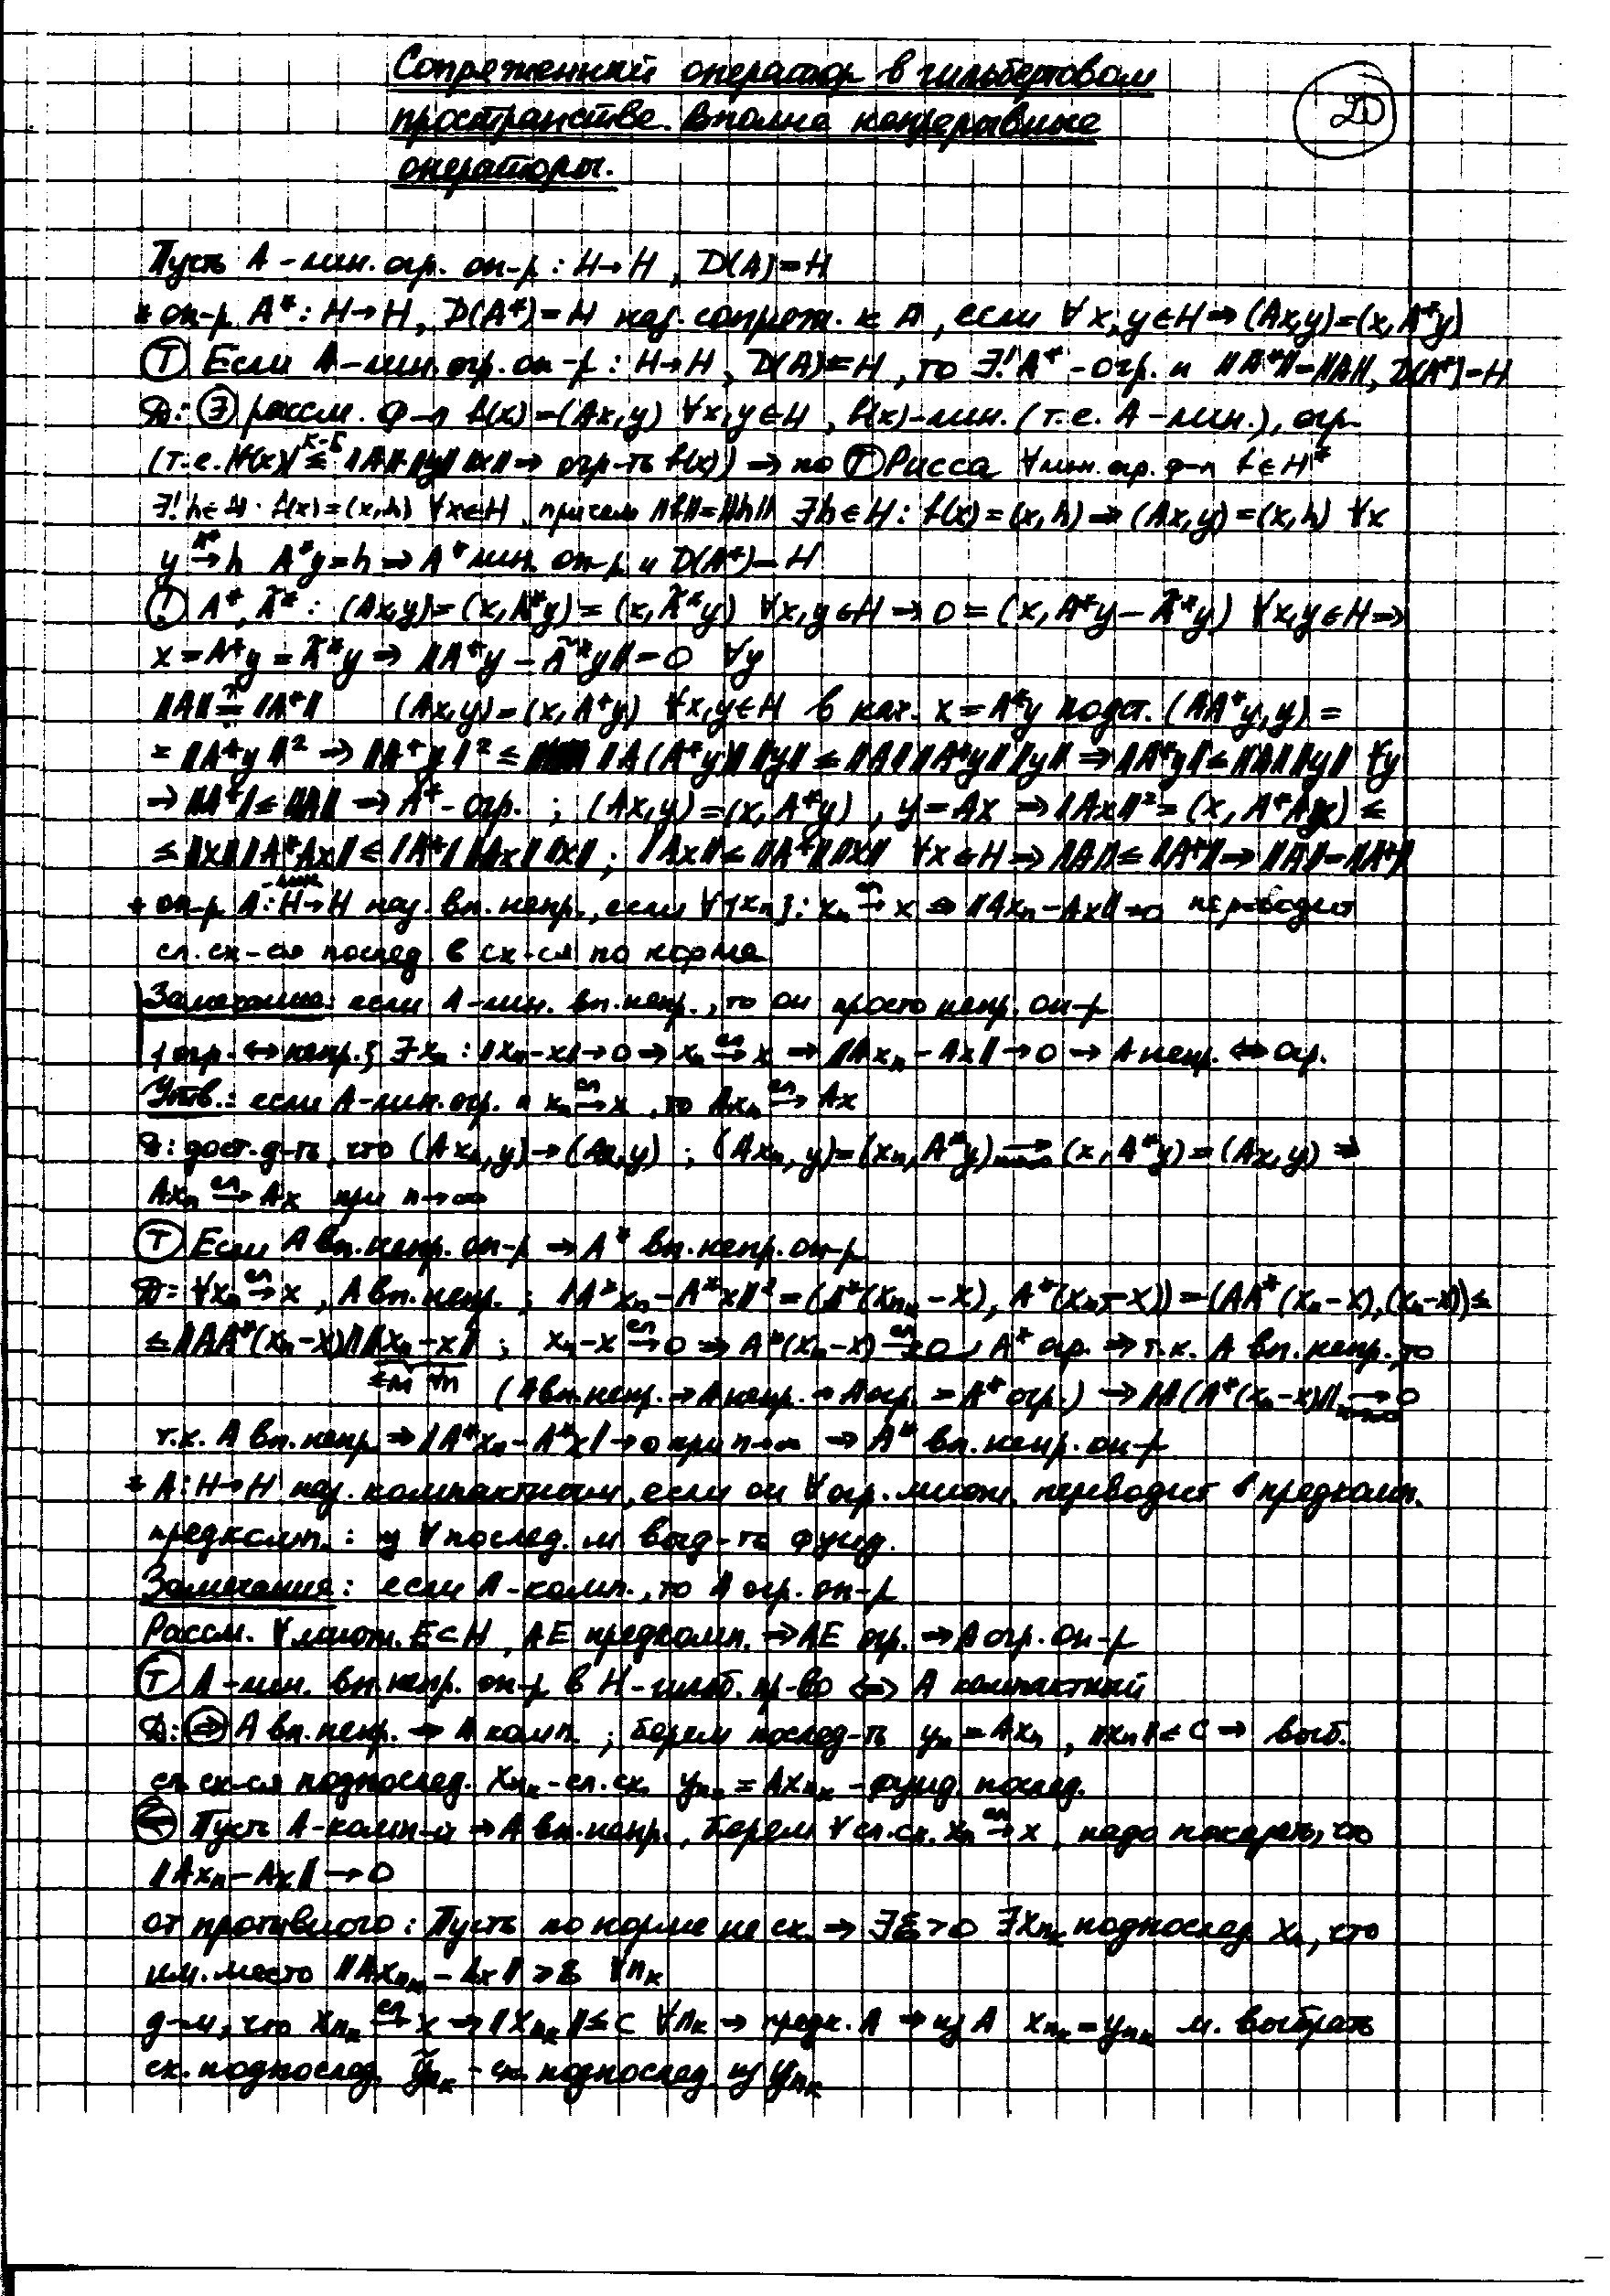 Сопряженный оператор в гильбертовом
пространстве. Вполне непрерывные
операторы.
20
Пусть A - лин. огр. оп-р : H→H , D(A)=H
* оп-р A* : H→H, D(A*)=H наз. сопряж. к A , если ∀x,y∈H ⇒ (Ax,y)=(x,A*y)
Ⓣ Если A - лин. огр. оп-р : H→H , D(A)=H , то ∃! A* - огр. и ||A*||=||A||, D(A*)=H
D: ∃ рассм. ф-л f(x)=(Ax,y) ∀x,y∈H , f(x)-лин. (т.е. A - лин.), огр.
(т.е. |f(x)| ≤^{К-Б} ||A|| ||y|| ||x|| ⇒ огр-ть f(x)) ⇒ по Ⓣ Рисса ∀ лин. огр. ф-л f∈H*
∃! h∈H : f(x)=(x,h) ∀x∈H , причем ||f||=||h|| ∃h∈H : f(x)=(x,h) ⇒ (Ax,y)=(x,h) ∀x
y →^{A*} h A*y=h ⇒ A* лин. оп-р и D(A*)=H
(!) A*, Ã* : (Ax,y)=(x,A*y)=(x,Ã*y) ∀x,y∈H ⇒ 0=(x, A*y-Ã*y) ∀x,y∈H ⇒
x=A*y=Ã*y ⇒ ||A*y-Ã*y||=0 ∀y
||A|| =^? ||A*|| (Ax,y)=(x,A*y) ∀x,y∈H в кач. x=A*y подст. (AA*y,y)=
=||A*y||² ⇒ ||A*y||² ≤ ||A(A*y)|| ||y|| ≤ ||A|| ||A*y|| ||y|| ⇒ ||A*y|| ≤ ||A|| ||y|| ∀y
⇒ ||A*|| ≤ ||A|| ⇒ A* - огр. ; (Ax,y)=(x,A*y) , y=Ax ⇒ ||Ax||²=(x,A*Ax) ≤
≤ ||x|| ||A*Ax|| ≤ ||A*|| ||Ax|| ||x|| ; ||Ax|| ≤ ||A*|| ||x|| ∀x∈H ⇒ ||A|| ≤ ||A*|| ⇒ ||A||=||A*||
* оп-р A -лин. : H→H наз. вп. непр., если ∀{xn} : xn →^{сл} x ⇒ ||Axn-Ax||→0 переводит
сл. сх-ся послед. в сх-ся по норме
Замечание: если A - лин. вп. непр., то он просто непр. оп-р
{огр. ↔ непр.} ∃xn : ||xn-x||→0 ⇒ xn →^{сл} x ⇒ ||Axn-Ax||→0 → A непр. ⇔ огр.
Утв.: если A - лин. огр. и xn →^{сл} x , то Axn →^{сл} Ax
D: дост. д-ть, что (Axn,y)→(Ax,y) ; (Axn,y)=(xn,A*y) →_{n→∞} (x,A*y)=(Ax,y) ⇒
Axn →^{сл} Ax при n→∞
Ⓣ Если A вп. непр. оп-р ⇒ A* вп. непр. оп-р
D: ∀xn →^{сл} x , A вп. непр. ; ||A*xn-A*x||²=(A*(xn-x), A*(xn-x))=(AA*(xn-x),(xn-x)) ≤
≤ ||AA*(xn-x)|| ||xn-x|| ; xn-x →^{сл} 0 ⇒ A*(xn-x) →^{сл} 0 , A* огр. ⇒ т.к. A вп. непр., то
≤M ∀n (A вп. непр. → A непр. → A огр. = A* огр.) ⇒ ||A(A*(xn-x)|| →_{n→∞} 0
т.к. A вп. непр. ⇒ ||A*xn-A*x||→0 при n→∞ ⇒ A* вп. непр. оп-р
* A : H→H наз. компактным, если он ∀ огр. множ. переводит в предкомп.
предкомп. : из ∀ послед. м. выд-ть фунд.
Замечание: если A - комп., то A огр. оп-р
Рассм. ∀ множ. E⊂H , AE предкомп. ⇒ AE огр. ⇒ A огр. оп-р
Ⓣ A - лин. вп. непр. оп-р в H - гильб. пр-во ⇔ A компактный
D: ⇒ A вп. непр. → A комп. ; берем послед-ть yn=Axn , ||xn|| ≤ C ⇒ выб.
сл. сх-ся подпослед. xnk - сл. сх. ynk=Axnk - фунд. послед.
⇐ Пусть A - комп-й → A вп. непр., берем ∀ сл. сх. xn →^{сл} x , надо показать, что
||Axn-Ax||→0
от противного : Пусть по норме не сх. ⇒ ∃ε>0 ∃xnk подпослед. xn, что
им. место ||Axnk-Ax|| > ε ∀nk
д-м, что xnk →^{сл} x → ||xnk|| ≤ C ∀nk → предк. A ⇒ из A xnk=ynk м. выбрать
сх. подпослед. ỹnk - сх. подпослед. из ynk